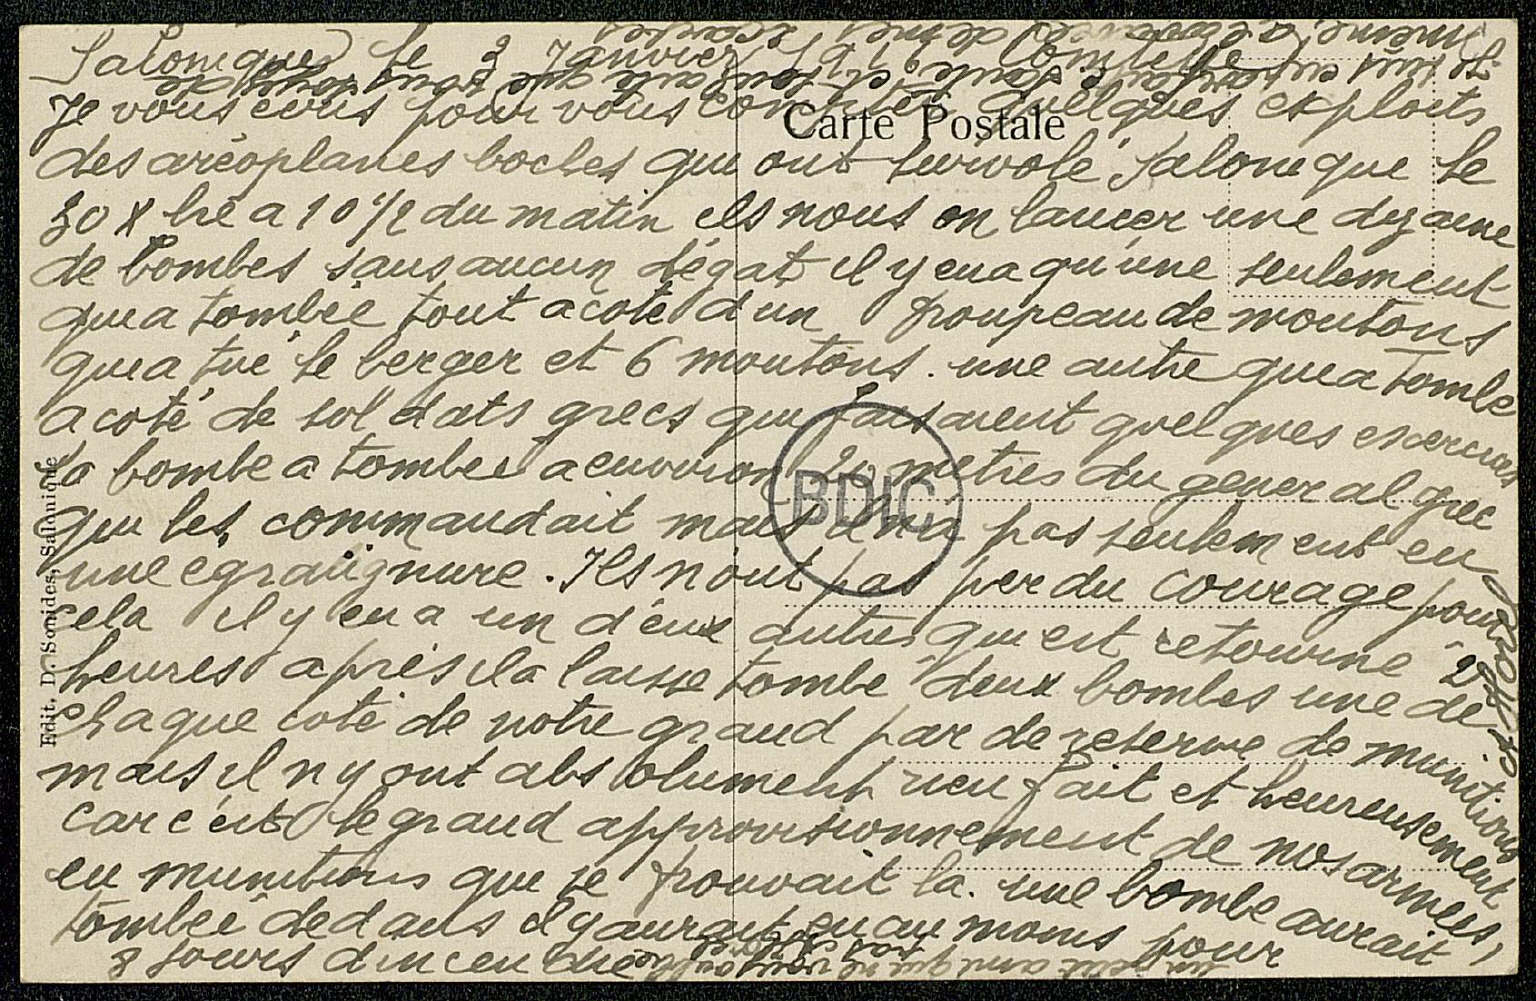 Salonique le 3 Janvier 1916
Carte Postale
Je vous écris pour vous conter quelques exploits
des aréoplanes boches qui ont survolé Salonique le
30 Xbre a 10 1/2 du matin ils nous on lancer une dizaine
de bombes sans aucun dégat il y en a qu'une seulement
qui a tombée tout a coté d'un troupeau de moutons
qui a tué le berger et 6 moutons. une autre qui a tombé
a coté de soldats grecs qui faisaient quelques exercices
la bombe a tombée a environ 20 mètres du general grec
qui les commandait mais pas seulement eu
une egraignure. Ils n'ont pas perdu courage pour
cela il y en a un d'eux autres qui est retourné 2
heures après il a laisse tombé deux bombes une de
chaque coté de notre grand parc de reserve de munitions
mais il n'y ont absolument rien fait et heureusement
car c'est le grand approvisionnement de nos armées,
en munitions que se trouvait la. une bombe aurait
tombée dedans il y aurait eu au moins pour
8 jours d'incendie
BDIC
Edit. D. Sonides, Salonique